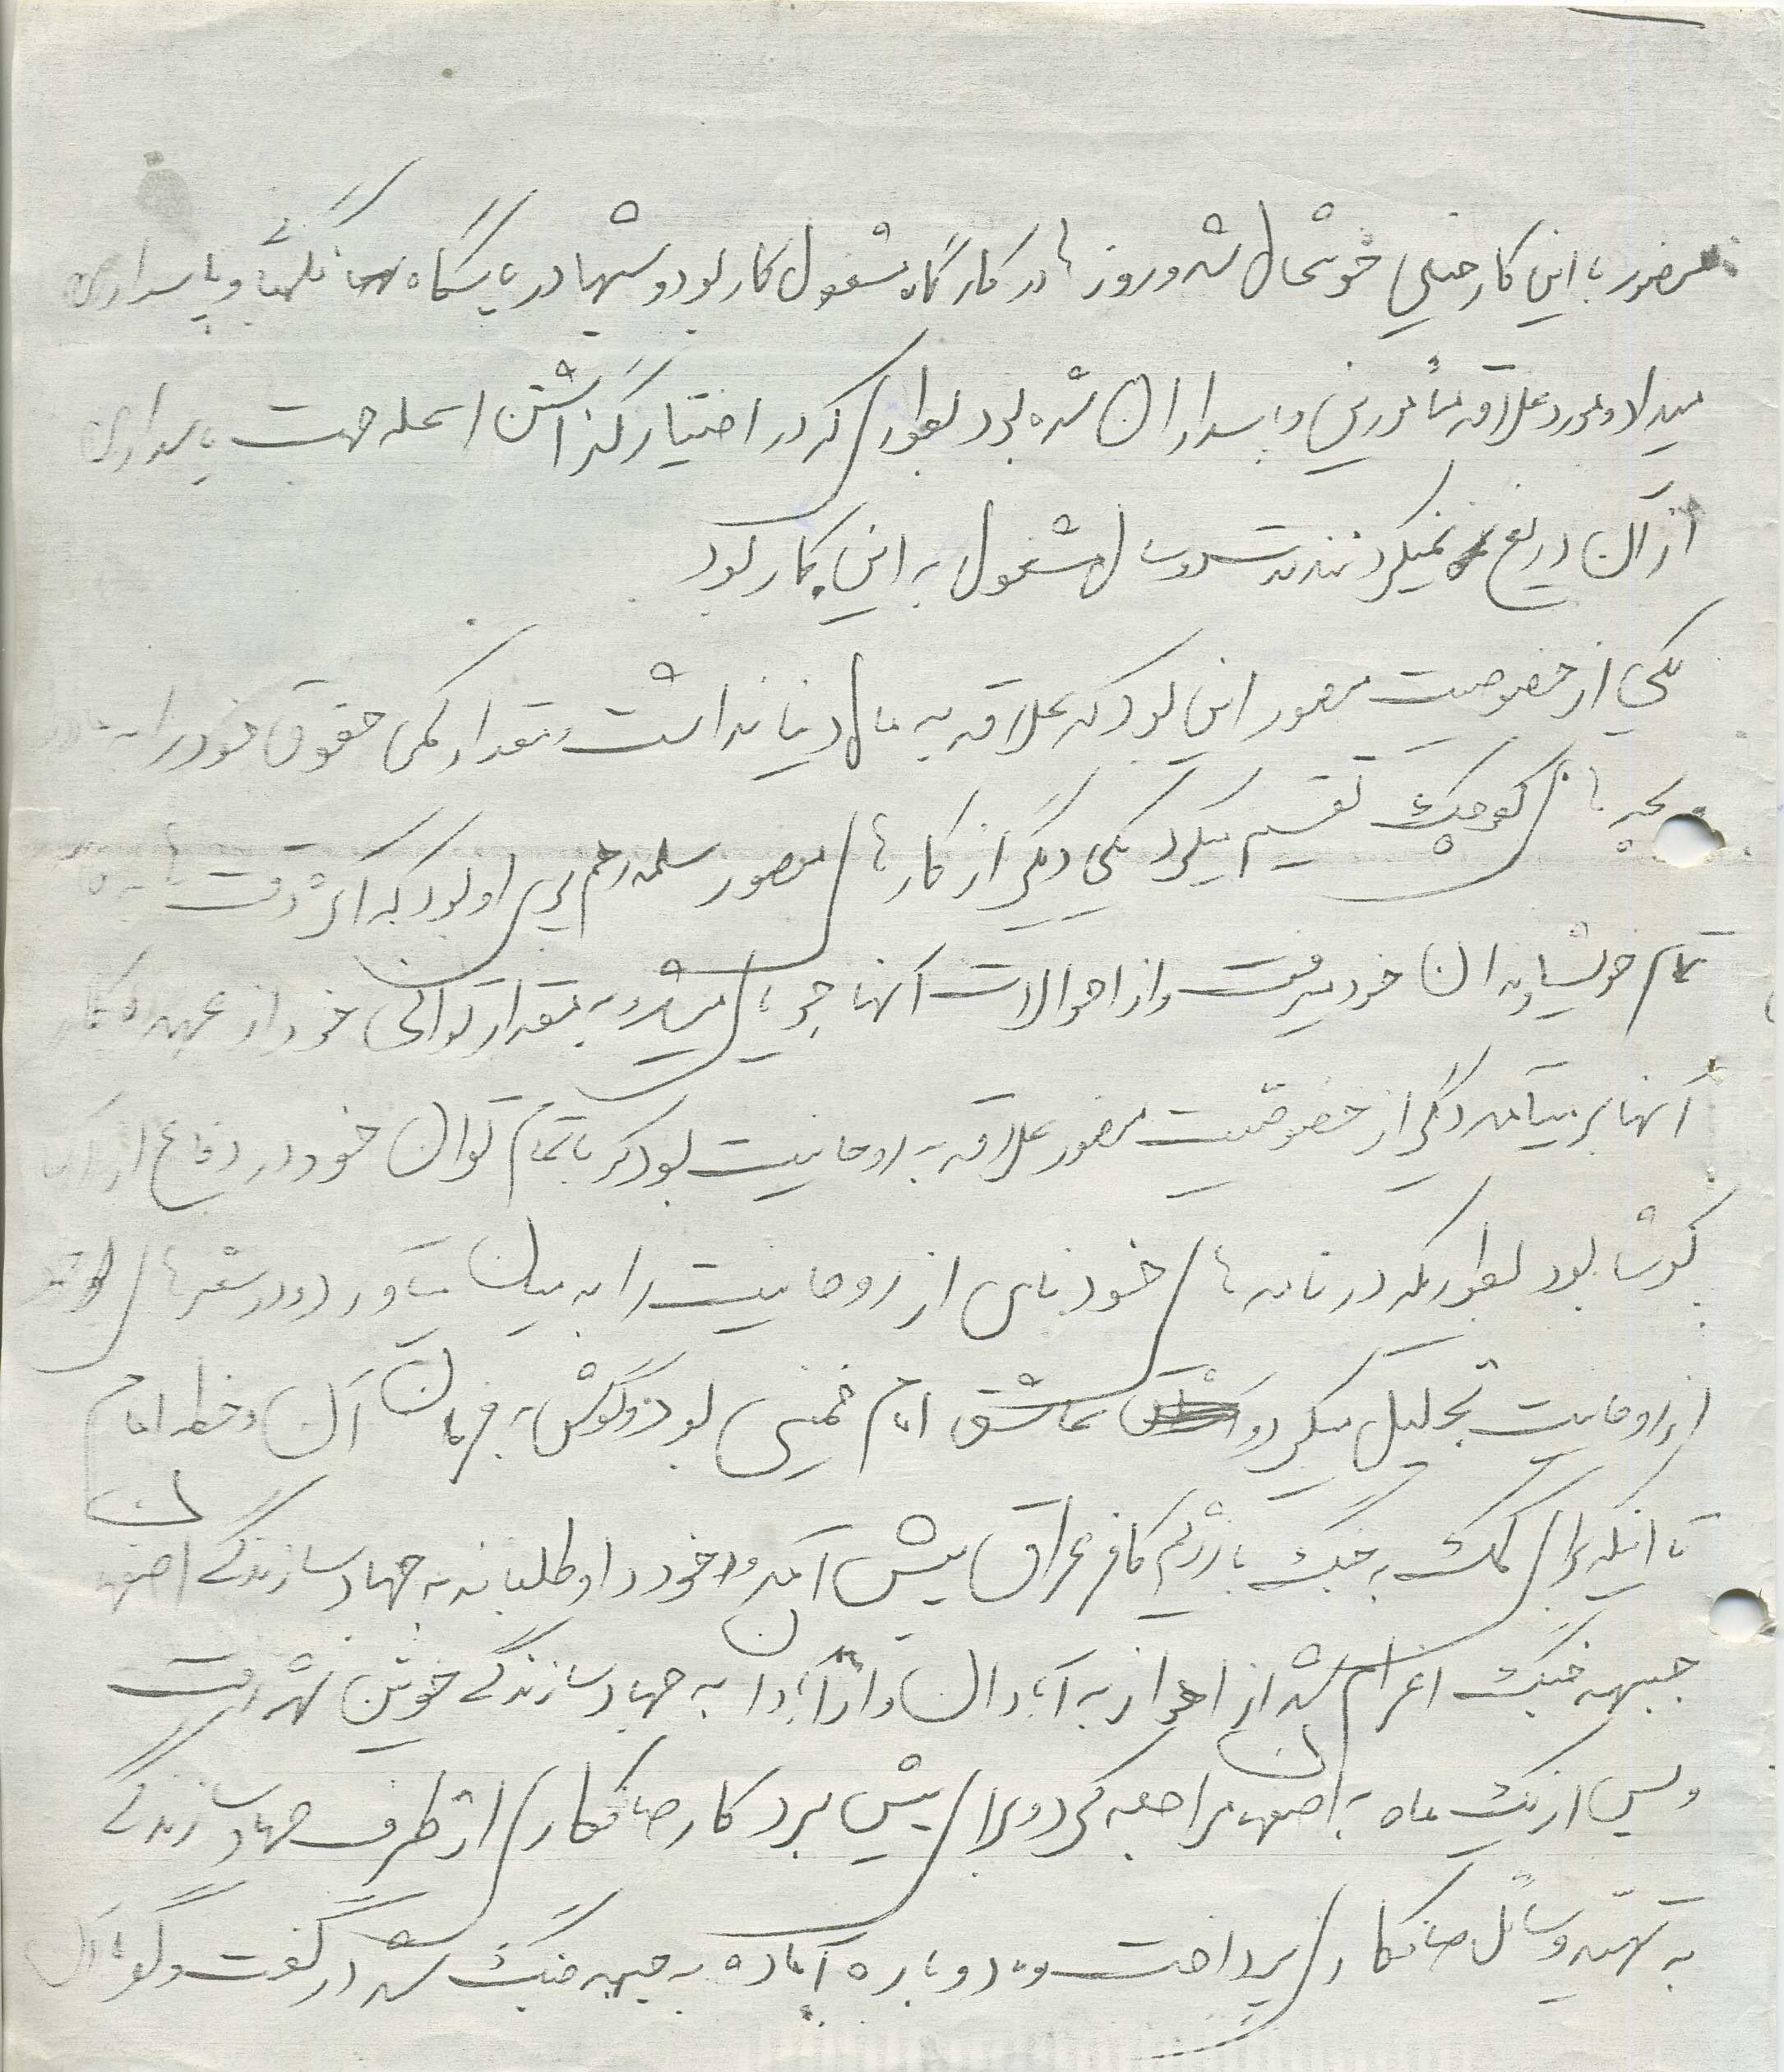 منصور با این کار خیلی خوشحال شد و روزها در کارگاه مشغول کار بود و شبها در پاسگاه نگهبانی و پاسداری
میداد و مورد علاقه مأمورین و پاسداران شده بود بطوری که در اختیار گذاشتن اسلحه جهت پاسداری
از آن دریغ نمیکردند مشغول به این کار بود
یکی از خصوصیت منصور این بود که علاقه به مال دنیا نداشت مقدار کمی حقوق خود را به
بچه های کوچک تقسیم میکرد یکی دیگر از کارهای منصور سلمه رحم برای او بود که اکثر وقت ها به
تمام خویشاوندان خود میرفت و از احوالات آنها جویا میشد و به مقدار توانائی خود از عهده کار
آنها بر میآمد دیگر از خصوصیت منصور علاقه به روحانیت بود که با تمام توان خود در دفاع از
کوشا بود بطوریکه در نامه های خود نامی از روحانیت را به میان میآورد و در شعرهای
از روحانیت تجلیل میکرد و عاشق امام خمینی بود و گوش به فرمان آن و خط امام
تا اینکه برای کمک به جنگ با رژیم کافر عراق پیش آمد و خود داوطلبانه به جهاد سازندگی اصفهان
جبهه جنگ اعزام شد از اهواز به آبادان و از آبادان به جهاد سازندگی خونین شهر رفت
و پس از یک ماه به اصفهان مراجعه کرد و برای پیش برد کار صافکاری از طرف جهاد سازندگی
به تهیه وسائل صافکاری پرداخت و دوباره آماده به جبهه جنگ شد در گفت و گو با آن